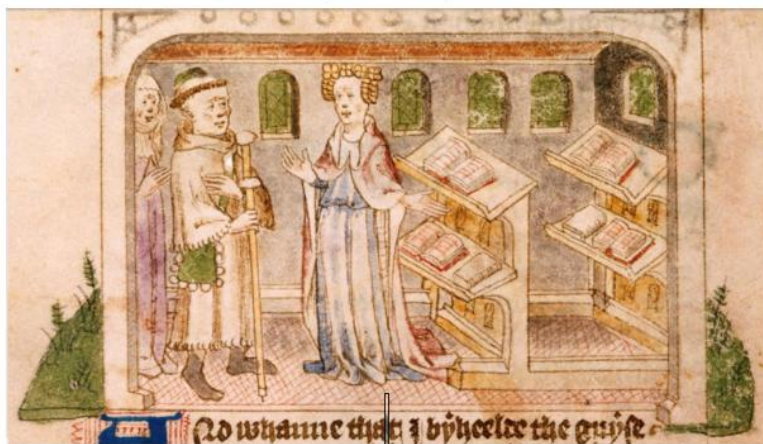 And whanne that I byheelde the guyse